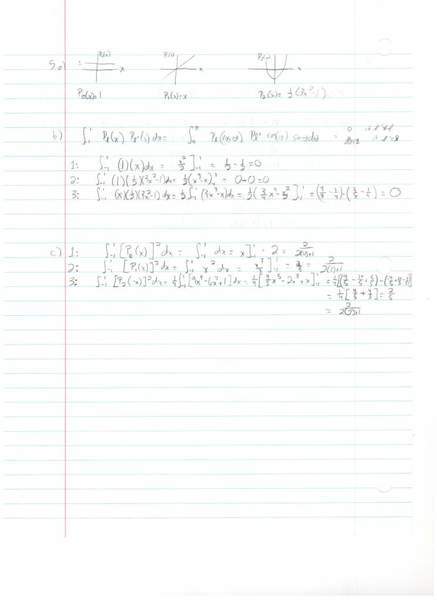 5. a) P₀(x) P₁(x) P₂(x)
x x x
P₀(x)=1 P₁(x)=x P₂(x)=½(3x²-1)
b) ∫₋₁¹ Pₗ(x) Pₗ'(x)dx =
1: ∫₋₁¹ (1)(x)dx = x²/2 ]₋₁¹ = ½-½=0
2: ∫₋₁¹ (1)(½)(3x²-1)dx = ½(x³-x)₋₁¹ = 0+0=0
3: ∫₋₁¹ (x)(½)(3x²-1)dx = ½∫₋₁¹ (3x³-x)dx = ½(¾x⁴-x²/2)]₋₁¹ = = 0
c) 1: ∫₋₁¹ [P₀(x)]²dx = ∫₋₁¹ dx = x]₋₁¹ = 2 = 2/2(0)+1
2: ∫₋₁¹ [P₁(x)]²dx = ∫₋₁¹ x²dx = x³/3]₋₁¹ = ⅔ = 2/2(1)+1
3: ∫₋₁¹ [P₂(x)]²dx = ¼∫₋₁¹[9x⁴-6x²+1]dx = ¼[9/5x⁵-2x³+x]₋₁¹
= ¼[4/5+4/5] = 2/5
= 2/2(2)+1